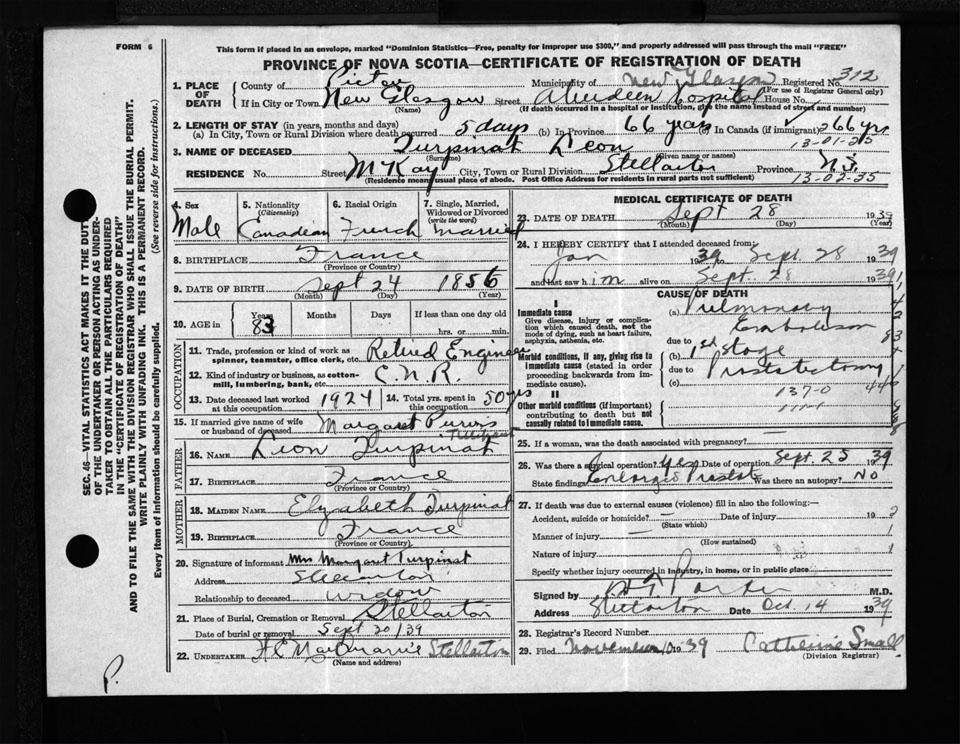 FORM 6
This form if placed in an envelope, marked "Dominion Statistics—Free, penalty for improper use $300," and properly addressed will pass through the mail "FREE"
PROVINCE OF NOVA SCOTIA—CERTIFICATE OF REGISTRATION OF DEATH
SEC. 46—VITAL STATISTICS ACT MAKES IT THE DUTY
OF THE UNDERTAKER OR PERSON ACTING AS UNDER-
TAKER TO OBTAIN ALL THE PARTICULARS REQUIRED
IN THE "CERTIFICATE OF REGISTRATION OF DEATH"
AND TO FILE THE SAME WITH THE DIVISION REGISTRAR WHO SHALL ISSUE THE BURIAL PERMIT.
WRITE PLAINLY WITH UNFADING INK. THIS IS A PERMANENT RECORD.
Every item of information should be carefully supplied. (See reverse side for instructions.)
1. PLACE OF DEATH
County of Pictou Municipality of New Glasgow Registered No. 312
(For use of Registrar General only)
If in City or Town New Glasgow Street Aberdeen Hospital House No.
(Name) (If death occurred in a hospital or institution, give the name instead of street and number)
2. LENGTH OF STAY (in years, months and days)
(a) In City, Town or Rural Division where death occurred 5 days (b) In Province 66 years (c) In Canada (if immigrant) 66 yrs
13-01-25
3. NAME OF DECEASED Turpinat Leon
(Surname) (Given name or names)
RESIDENCE No. Street McKay City, Town or Rural Division Stellarton Province N.S.
(Residence means usual place of abode. Post Office Address for residents in rural parts not sufficient)
13-02-25
4. Sex Male
5. Nationality (Citizenship) Canadian
6. Racial Origin French
7. Single, Married, Widowed or Divorced (write the word) Married
8. BIRTHPLACE France
(Province or Country)
9. DATE OF BIRTH Sept 24 1856
(Month) (Day) (Year)
10. AGE in Years 83 Months Days If less than one day old
hrs. or min.
OCCUPATION
11. Trade, profession or kind of work as spinner, teamster, office clerk, etc. Retired Engineer
12. Kind of industry or business, as cotton-mill, lumbering, bank, etc. C.N.R.
13. Date deceased last worked at this occupation 1924
14. Total yrs. spent in this occupation 50 yrs
15. If married give name of wife or husband of deceased Margaret Purvis
FATHER
16. NAME Leon Turpinat
17. BIRTHPLACE France
(Province or Country)
MOTHER
18. MAIDEN NAME Elyzabeth Turpinat
19. BIRTHPLACE France
(Province or Country)
20. Signature of informant Mrs Margaret Turpinat
Address Stellarton
Relationship to deceased widow
21. Place of Burial, Cremation or Removal Stellarton
Date of burial or removal Sept 30/39
22. UNDERTAKER Stellarton
(Name and address)
P.
MEDICAL CERTIFICATE OF DEATH
23. DATE OF DEATH Sept 28 1939
(Month) (Day)
24. I HEREBY CERTIFY that I attended deceased from:
Jan 1939 to Sept. 28 1939
and last saw him alive on Sept. 28 1939
CAUSE OF DEATH
I
Immediate cause
Give disease, injury or complication which caused death, not the mode of dying, such as heart failure, asphyxia, asthenia, etc.
(a) Pulmonary Embolism
due to
Morbid conditions, if any, giving rise to immediate cause (stated in order proceeding backwards from immediate cause).
(b) 1st Stage
due to Prostatectomy
(c)
137-0
II
Other morbid conditions (if important) contributing to death but not causally related to immediate cause.
25. If a woman, was the death associated with pregnancy?
26. Was there a surgical operation? Yes Date of operation Sept. 25 1939
State findings Enlarged Prostate Was there an autopsy? No
27. If death was due to external causes (violence) fill in also the following:—
Accident, suicide or homicide? — Date of injury 19
(State which)
Manner of injury —
(How sustained)
Nature of injury
Specify whether injury occurred in industry, in home, or in public place
Signed by M.D.
Address Stellarton Date Oct. 14 1939
28. Registrar's Record Number
29. Filed November 10 1939 Catherine Small
(Division Registrar)